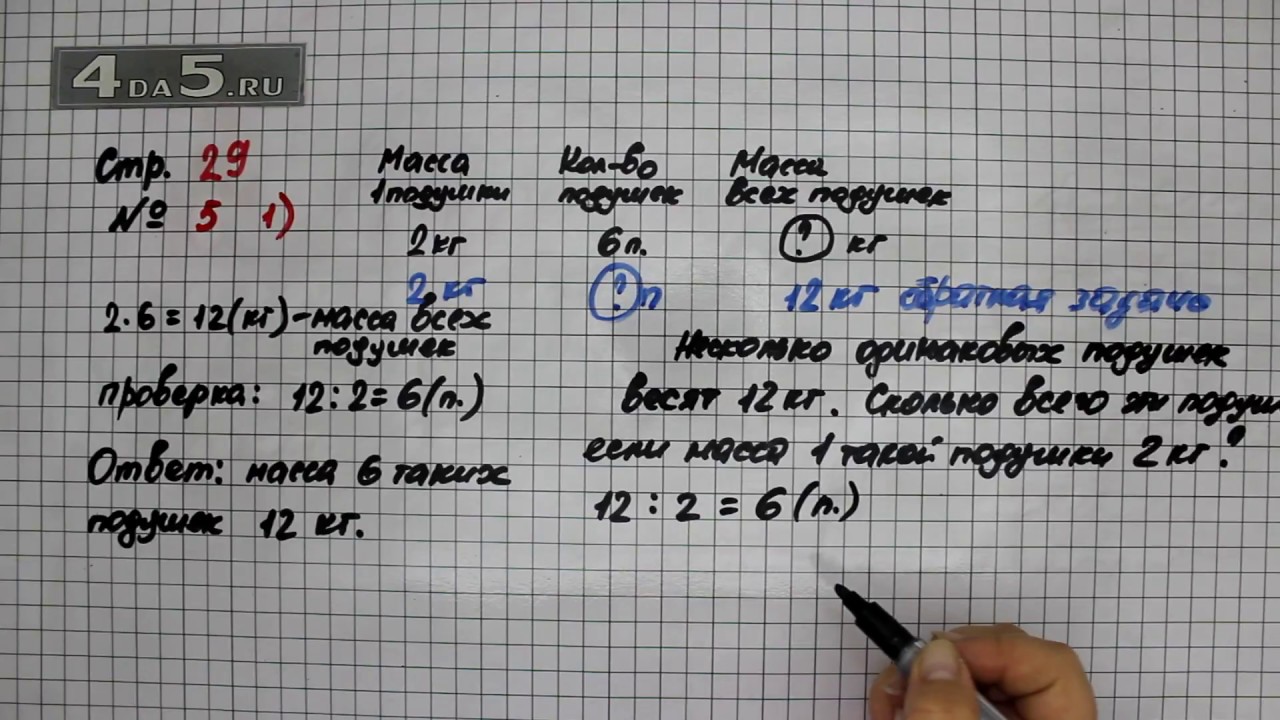 4DA5.RU
Стр. 29
№ 5 1)
Масса 1 подушки
Кол-во подушек
Масса всех подушек
2 кг 6 п. ? кг
2 кг ? п 12 кг обратная задача
2 · 6 = 12 (кг) - масса всех
подушек
проверка: 12 : 2 = 6 (п.)
Ответ: масса 6 таких
подушек 12 кг.
Несколько одинаковых подушек
весят 12 кг. Сколько всего эти подуш
если масса 1 такой подушки 2 кг?
12 : 2 = 6 (п.)